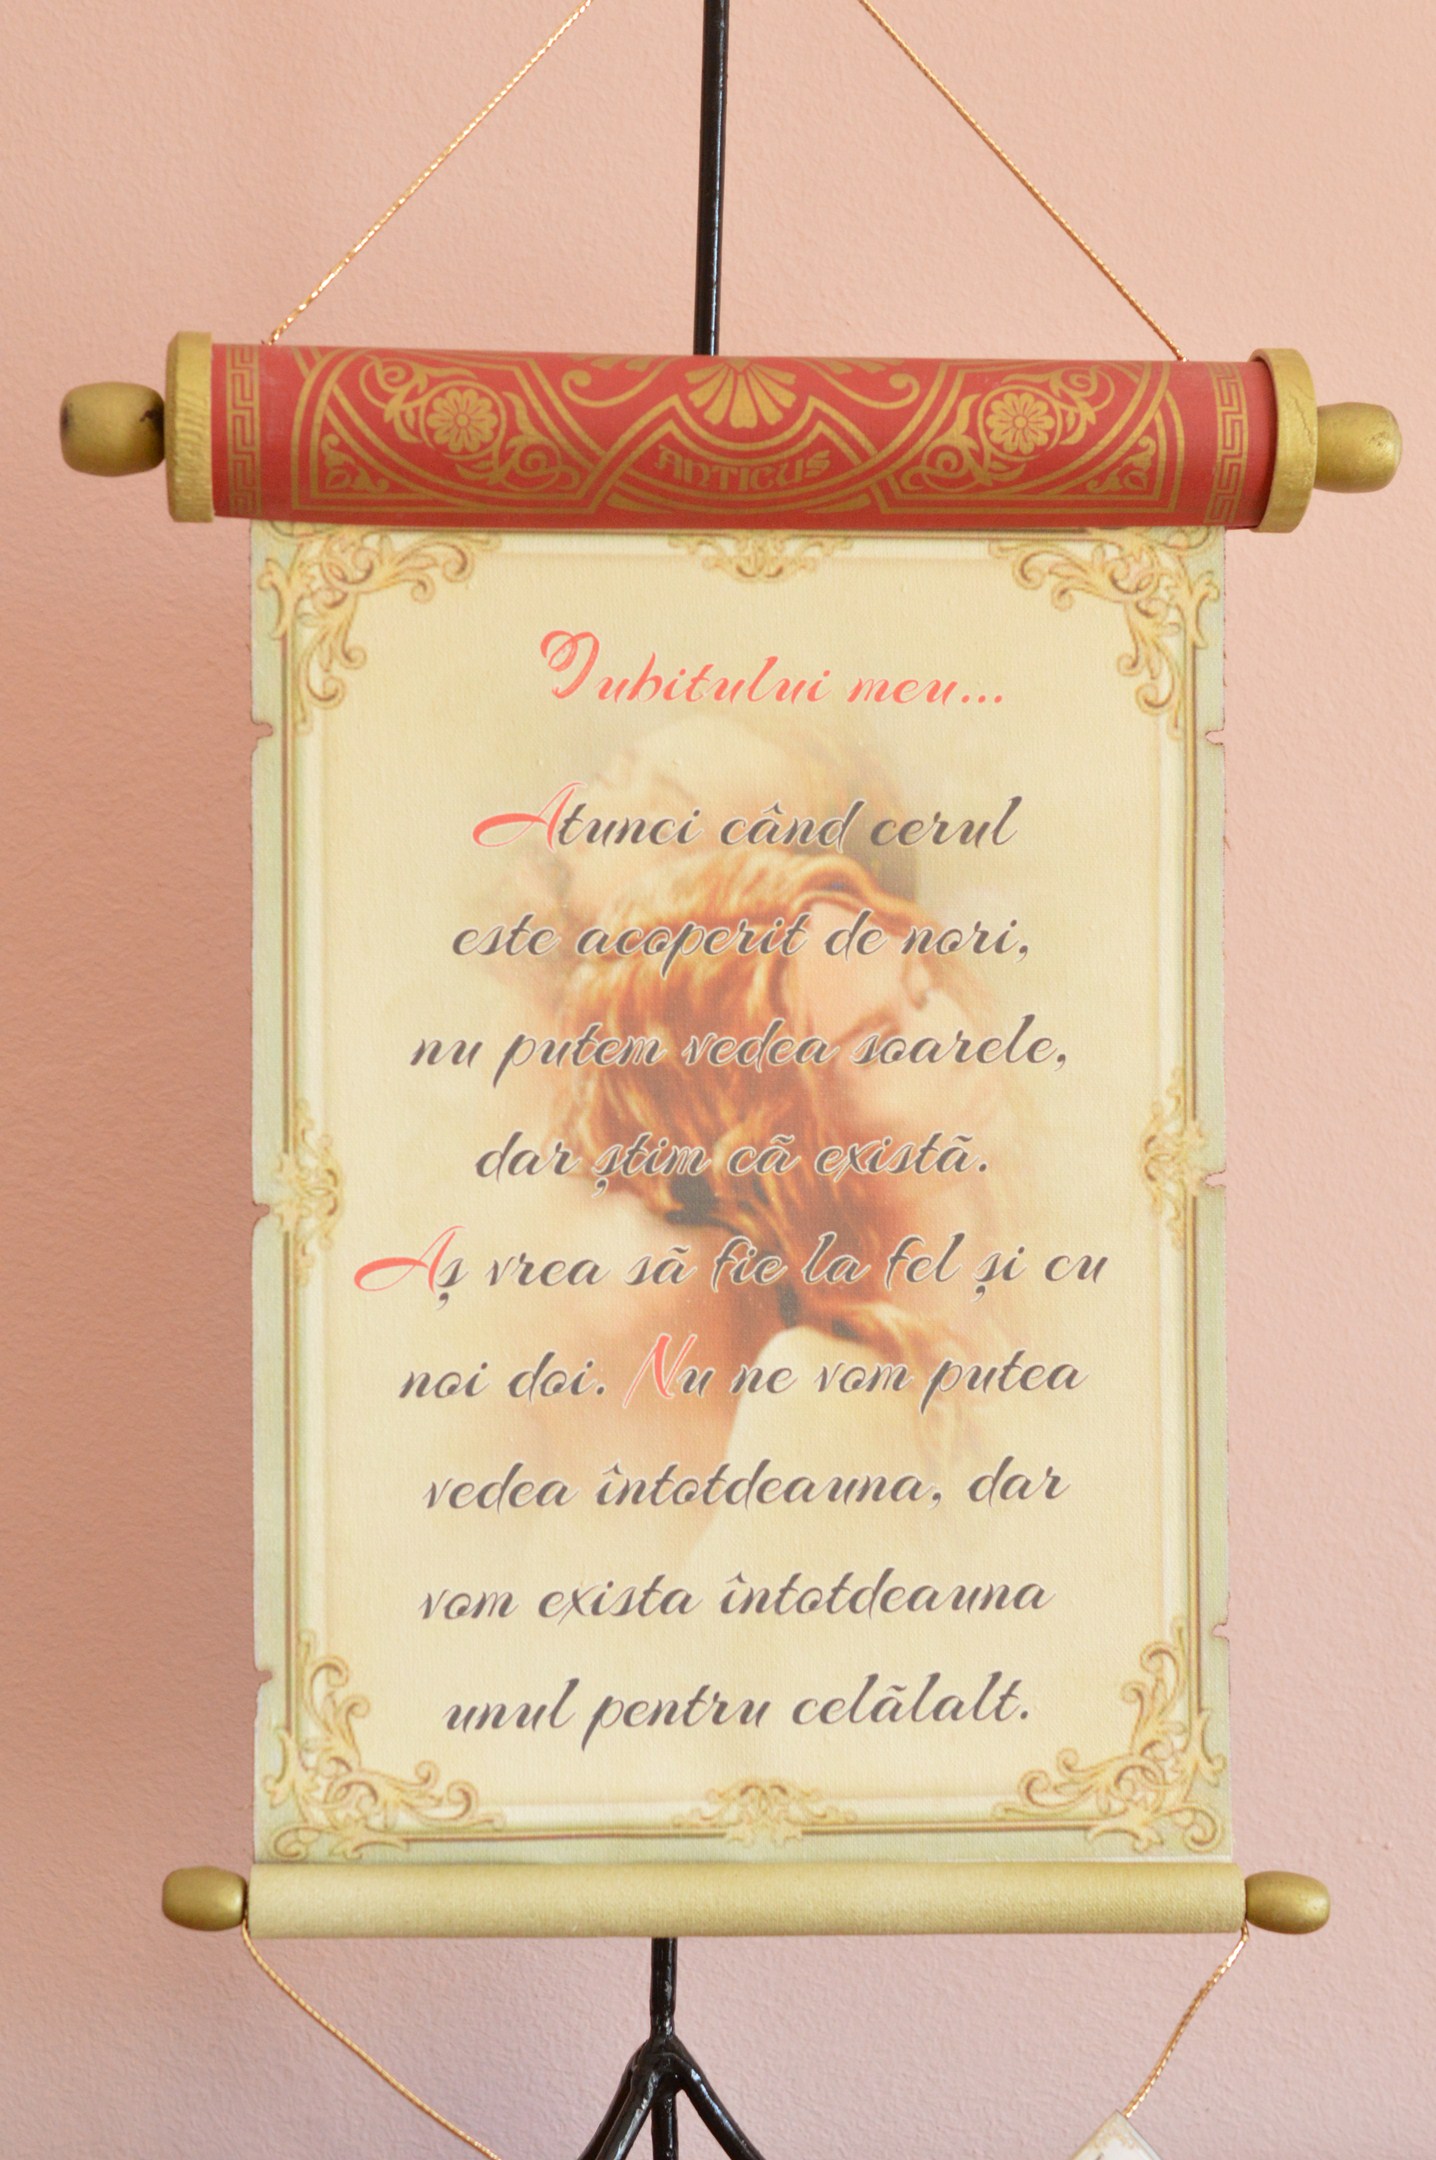 ANTICUS
Iubitului meu...
Atunci când cerul
este acoperit de nori,
nu putem vedea soarele,
dar știm cã existã.
Aș vrea sã fie la fel și cu
noi doi. Nu ne vom putea
vedea întotdeauna, dar
vom exista întotdeauna
unul pentru celãlalt.